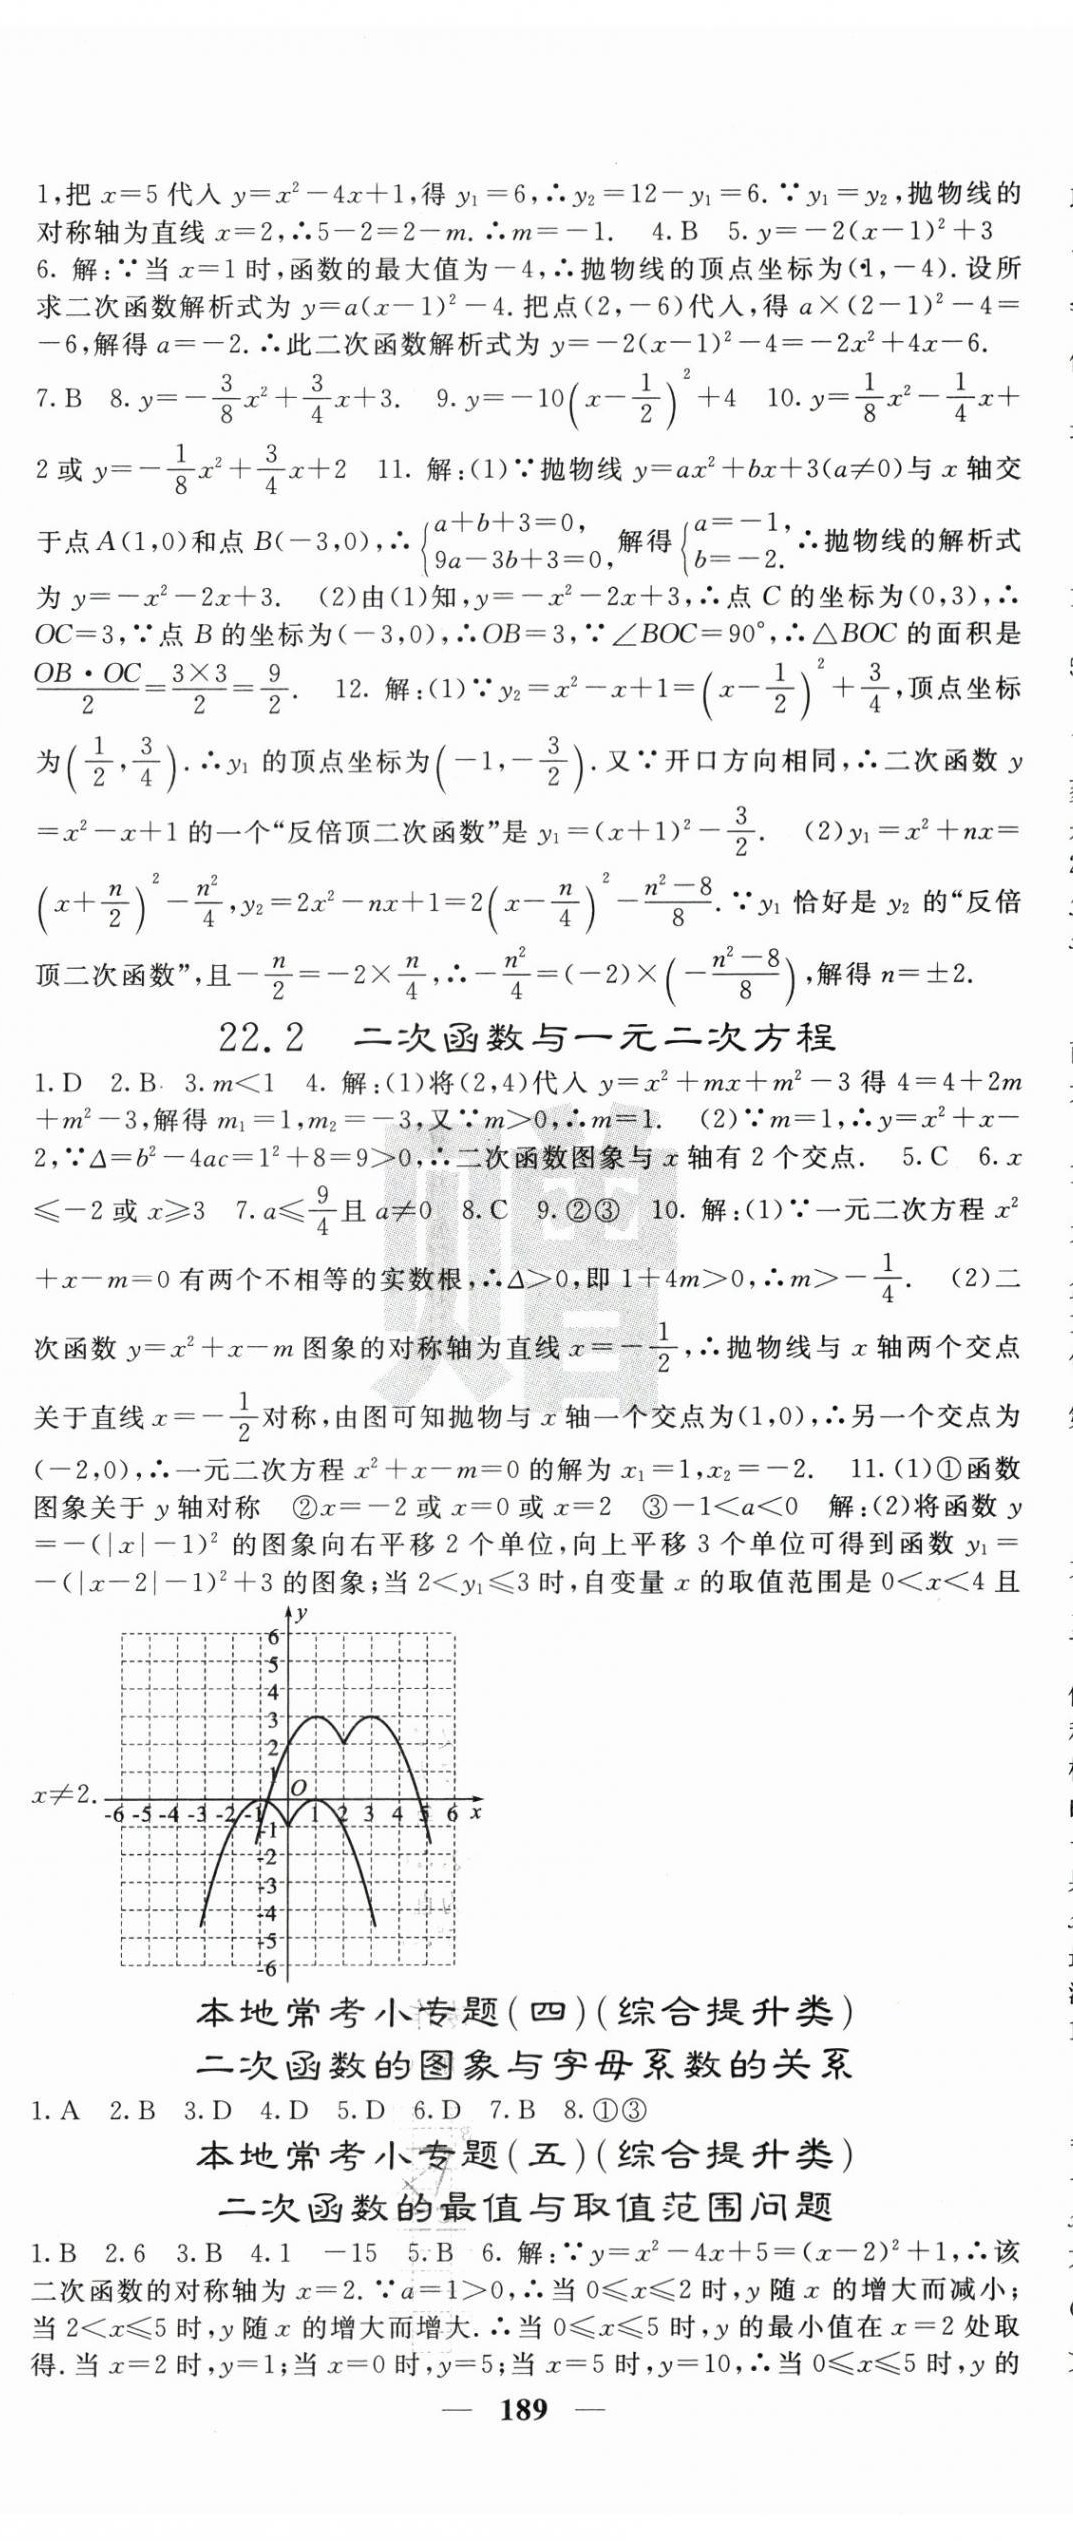 1,把 x=5 代入 y=x²-4x+1,得 y₁=6,∴y₂=12-y₁=6.∵y₁=y₂,抛物线的
对称轴为直线 x=2,∴5-2=2-m.∴m=-1. 4.B 5.y=-2(x-1)²+3
6. 解:∵当 x=1 时,函数的最大值为-4,∴抛物线的顶点坐标为(1,-4).设所
求二次函数解析式为 y=a(x-1)²-4.把点(2,-6)代入,得 a×(2-1)²-4=
-6,解得 a=-2.∴此二次函数解析式为 y=-2(x-1)²-4=-2x²+4x-6.
7.B 8.y=-3/8x²+3/4x+3. 9.y=-10(x-1/2)²+4 10.y=1/8x²-1/4x+
2 或 y=-1/8x²+3/4x+2 11. 解:(1)∵抛物线 y=ax²+bx+3(a≠0)与 x 轴交
于点A(1,0)和点 B(-3,0),∴{a+b+3=0, 9a-3b+3=0, 解得{a=-1, b=-2. ∴抛物线的解析式
为 y=-x²-2x+3. (2)由(1)知,y=-x²-2x+3,∴点 C 的坐标为(0,3),∴
OC=3,∵点 B 的坐标为(-3,0),∴OB=3,∵∠BOC=90°,∴△BOC 的面积是
OB·OC/2=3×3/2=9/2. 12. 解:(1)∵y₂=x²-x+1=(x-1/2)²+3/4,顶点坐标
为(1/2,3/4).∴y₁ 的顶点坐标为(-1,-3/2).又∵开口方向相同,∴二次函数 y
=x²-x+1 的一个“反倍顶二次函数”是 y₁=(x+1)²-3/2. (2)y₁=x²+nx=
(x+n/2)²-n²/4,y₂=2x²-nx+1=2(x-n/4)²-n²-8/8.∵y₁ 恰好是 y₂ 的“反倍
顶二次函数”,且-n/2=-2×n/4,∴-n²/4=(-2)×(-n²-8/8),解得 n=±2.
22.2 二次函数与一元二次方程
1.D 2.B 3.m<1 4. 解:(1)将(2,4)代入 y=x²+mx+m²-3 得 4=4+2m
+m²-3,解得 m₁=1,m₂=-3,又∵m>0,∴m=1. (2)∵m=1,∴y=x²+x-
2,∵Δ=b²-4ac=1²+8=9>0,∴二次函数图象与 x 轴有 2 个交点. 5.C 6.x
≤-2 或 x≥3 7.a≤9/4且 a≠0 8.C 9.②③ 10. 解:(1)∵一元二次方程 x²
+x-m=0 有两个不相等的实数根,∴Δ>0,即 1+4m>0,∴m>-1/4. (2)二
次函数 y=x²+x-m 图象的对称轴为直线 x=-1/2,∴抛物线与 x 轴两个交点
关于直线 x=-1/2对称,由图可知抛物与 x 轴一个交点为(1,0),∴另一个交点为
(-2,0),∴一元二次方程 x²+x-m=0 的解为 x₁=1,x₂=-2. 11.(1)①函数
图象关于 y 轴对称 ②x=-2 或 x=0 或 x=2 ③-1<a<0 解:(2)将函数 y
=-(|x|-1)² 的图象向右平移 2 个单位,向上平移 3 个单位可得到函数 y₁=
-(|x-2|-1)²+3 的图象;当 2<y₁≤3 时,自变量 x 的取值范围是 0<x<4 且
y
6
5
4
3
2
1
x≠2.
O
-6 -5 -4 -3 -2 -1 1 2 3 4 5 6 x
-1
-2
-3
-4
-5
-6
本地常考小专题(四)(综合提升类)
二次函数的图象与字母系数的关系
1.A 2.B 3.D 4.D 5.D 6.D 7.B 8.①③
本地常考小专题(五)(综合提升类)
二次函数的最值与取值范围问题
1.B 2.6 3.B 4.1 -15 5.B 6. 解:∵y=x²-4x+5=(x-2)²+1,∴该
二次函数的对称轴为 x=2.∵a=1>0,∴当 0≤x≤2 时,y 随 x 的增大而减小;
当 2<x≤5 时,y 随 x 的增大而增大.∴当 0≤x≤5 时,y 的最小值在 x=2 处取
得.当 x=2 时,y=1;当 x=0 时,y=5;当 x=5 时,y=10,∴当 0≤x≤5 时,y 的
— 189 —
赠